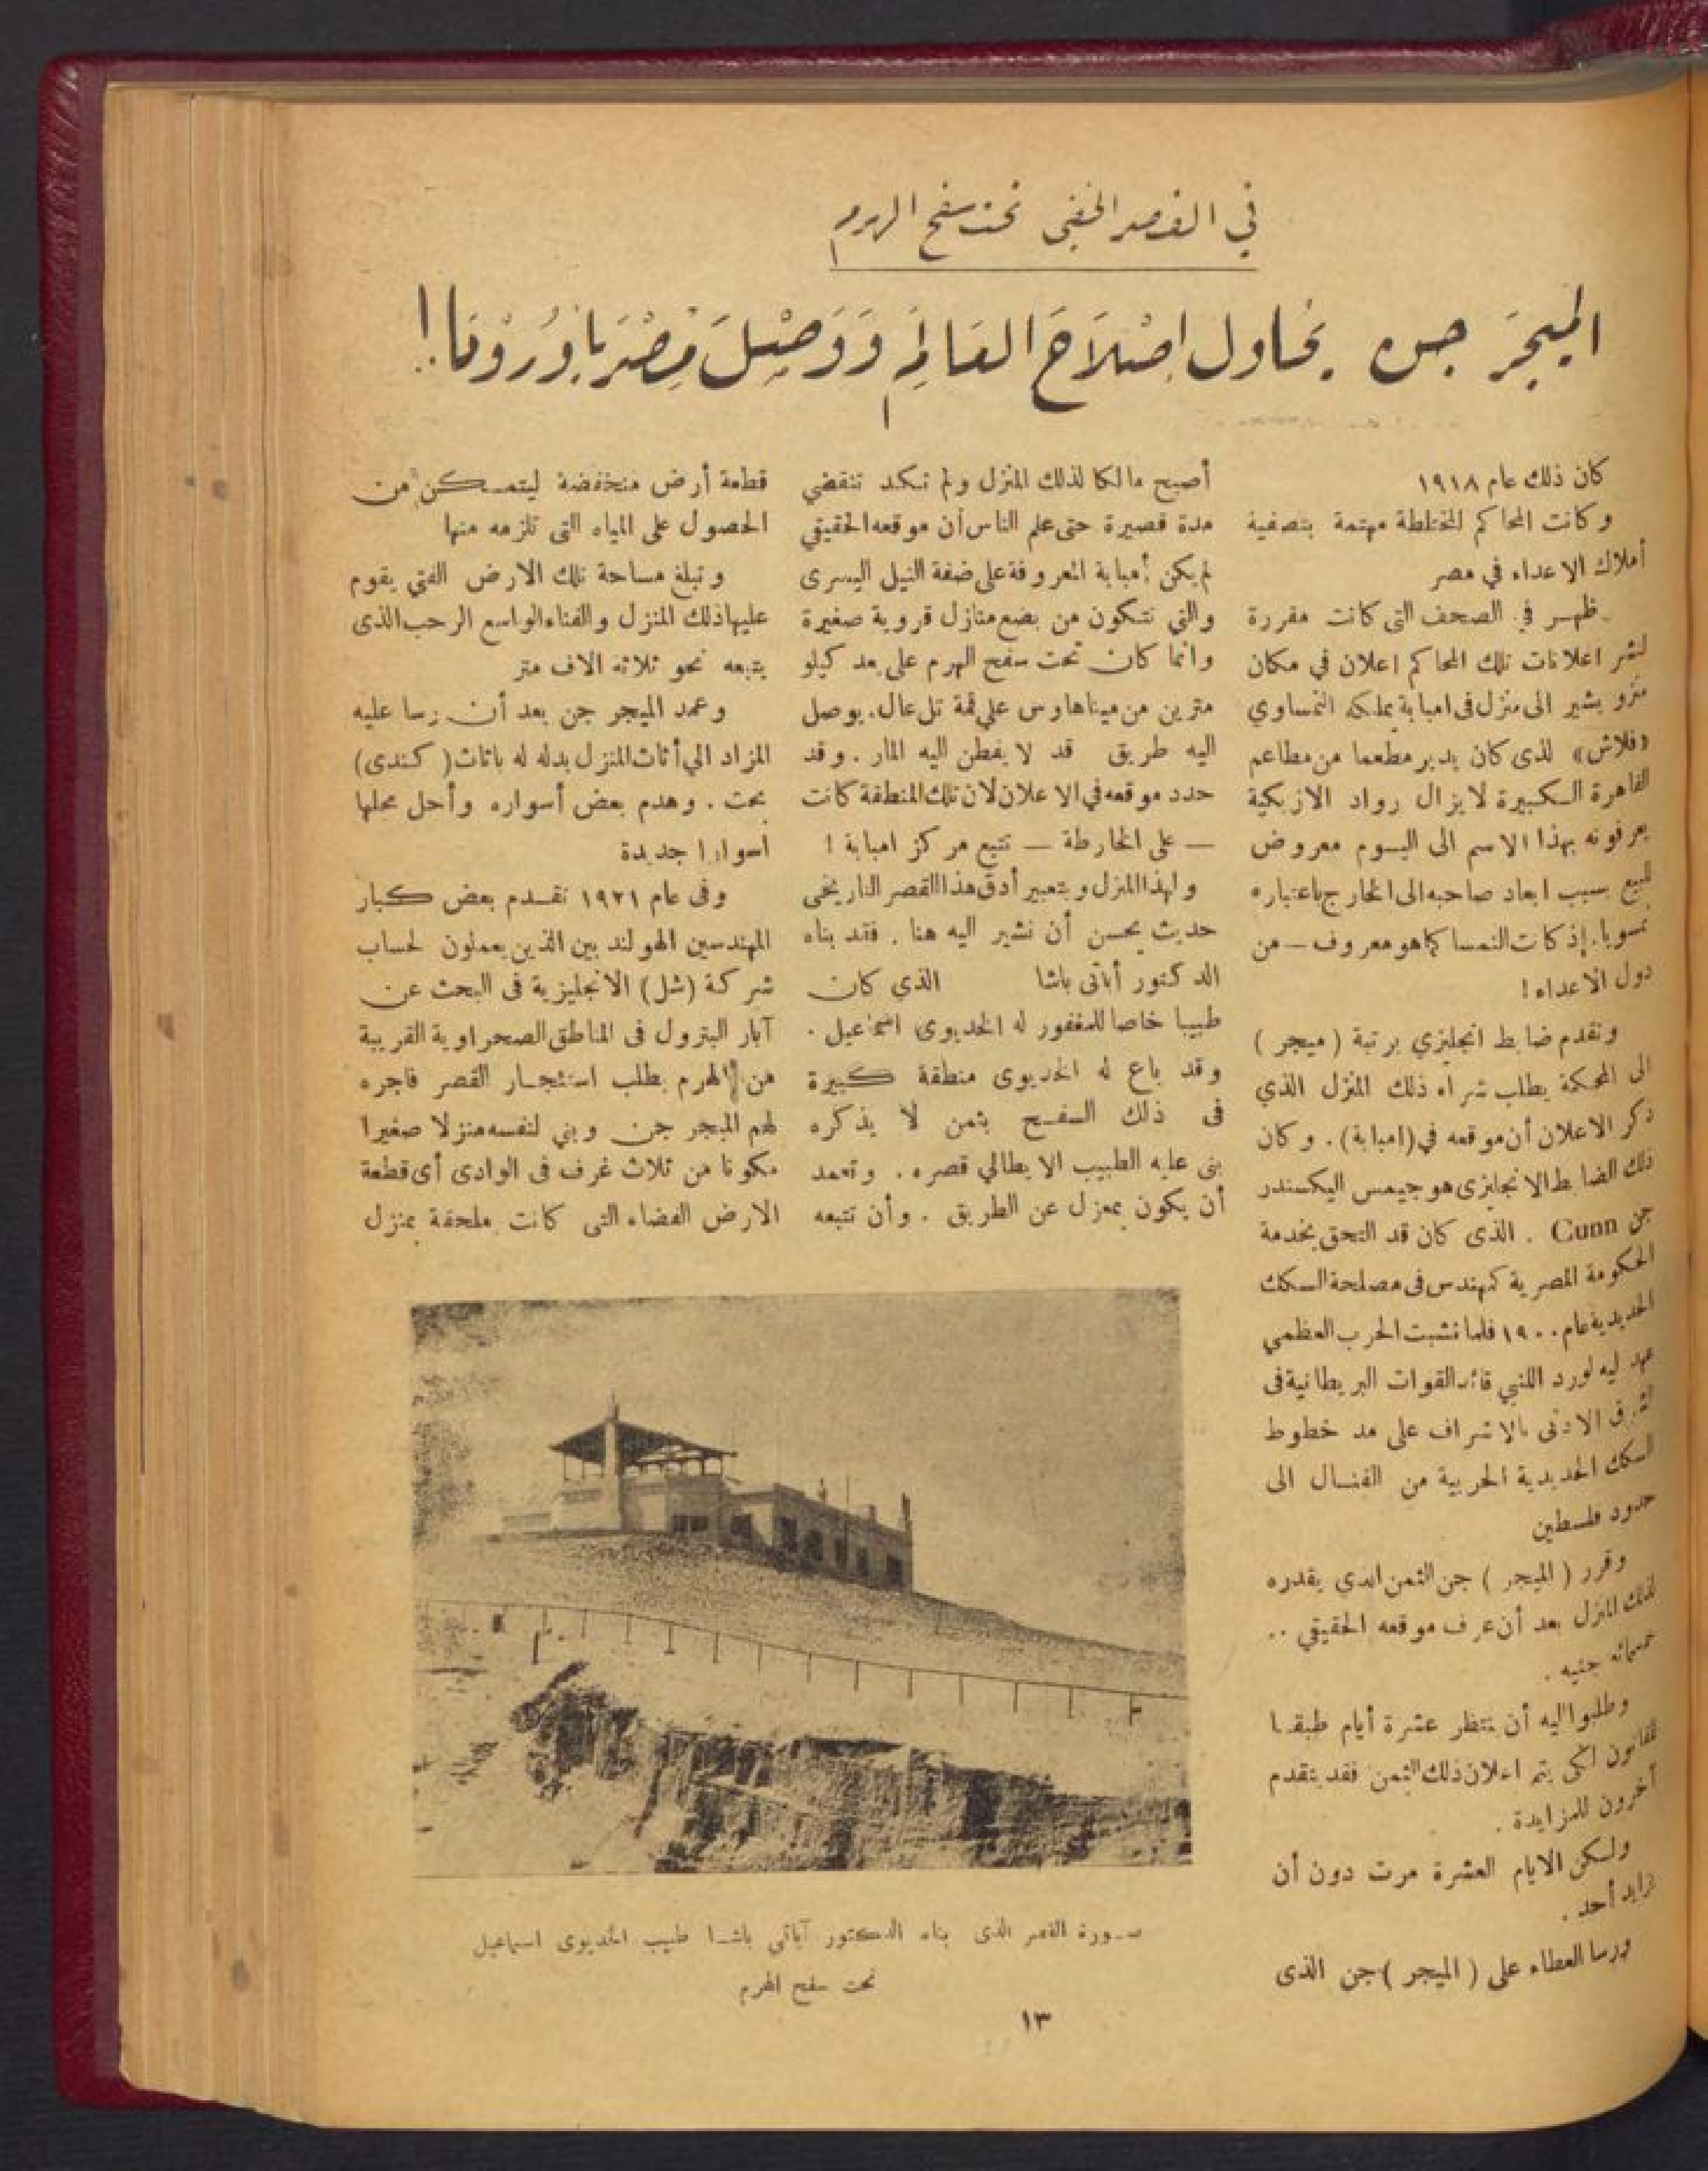 في القصر الخفى تحت سفح الهرم
الميجر جن يحاول اصلاح العالم ووصل مصر باوروبا!
كان ذلك عام ١٩١٨
وكانت المحاكم المختلطة مهتمة بتصفية
أملاك الاعداء في مصر
فظهر في الصحف التى كانت مقررة
لنشر اعلانات تلك المحاكم اعلان في مكان
منزو يشير الى منزل فى امبابة يملكه النمساوي
«فلاش» لذى كان يدير مطعما من مطاعم
القاهرة الكبيرة لا يزال رواد الازبكية
يعرفونه بهذا الاسم الى اليوم معروض
للبيع بسبب ابعاد صاحبه الى الخارج باعتباره
نمسويا. إذ كانت النمسا كما هو معروف – من
دول الاعداء!
وتقدم ضابط انجليزي برتبة (ميجر)
الى المحكمة يطلب شراء ذلك المنزل الذي
ذكر الاعلان أن موقعه في (امبابة). وكان
ذلك الضابط الانجليزى هو جيمس اليكسندر
جن Gunn . الذى كان قد التحق بخدمة
الحكومة المصرية كمهندس فى مصلحة السكك
الحديدية عام ١٩٠٠ فلما نشبت الحرب العظمي
عهد ليه لورد اللنبي قائد القوات البريطانية فى
الشرق الادنى بالاشراف على مد خطوط
السكك الحديدية الحربية من القنال الى
حدود فلسطين
وقرر (الميجر) جن الثمن الذي يقدره
لذلك المنزل بعد أن عرف موقعه الحقيقي ..
خمسمائه جنيه .
وطلبوا اليه أن ينتظر عشرة أيام طبقا
للقانون لكى يتم اعلان ذلك الثمن فقد يتقدم
آخرون للمزايدة .
ولكن الايام العشرة مرت دون أن
يزايد أحد .
ورسا العطاء على (الميجر) جن الذى
أصبح مالكا لذلك المنزل ولم تكد تنقضي
مدة قصيرة حتى علم الناس أن موقعه الحقيقي
لم يكن أمبابة المعروفة على ضفة النيل اليسرى
والتي تتكون من بضع منازل قروية صغيرة
وانما كان تحت سفح الهرم على بعد كيلو
مترين من ميناهاوس علي قمة تل عال. يوصل
اليه طريق قد لا يفطن اليه المار . وقد
حدد موقعه في الاعلان لان تلك المنطقة كانت
— على الخارطة — تتبع مركز امبابة !
ولهذا المنزل وبتعبير أدق هذا القصر التاريخى
حديث يحسن أن نشير اليه هنا . فقد بناه
الدكتور أباتى باشا الذي كان
طبيبا خاصا للمغفور له الخديوى اسماعيل .
وقد باع له الخديوى منطقة كبيرة
فى ذلك السفح بثمن لا يذكره
بنى عليه الطبيب الايطالي قصره . وتعمد
أن يكون بمعزل عن الطريق . وأن تتبعه
قطعة أرض منخفضة ليتمكن من
الحصول على المياه التى تلزمه منها
وتبلغ مساحة تلك الارض التي يقوم
عليها ذلك المنزل والفناء الواسع الرحب الذى
يتبعه نحو ثلاثة الاف متر
وعمد الميجر جن بعد أن رسا عليه
المزاد الي أثاث المنزل بدله له باثاث (كندى)
بحت . وهدم بعض أسواره وأحل محلها
أسوارا جديدة
وفى عام ١٩٢١ تقدم بعض كبار
المهندسين الهولنديين الذين يعملون لحساب
شركة (شل) الانجليزية فى البحث عن
آبار البترول فى المناطق الصحراوية القريبة
من الهرم بطلب استئجار القصر فاجره
لهم الميجر جن وبني لنفسه منزلا صغيرا
مكونا من ثلاث غرف فى الوادى أى قطعة
الارض الفضاء التى كانت ملحقة بمنزل
صورة القصر الذى بناه الدكتور آباتي باشا طبيب الخديوى اسماعيل
تحت سفح الهرم
١٣